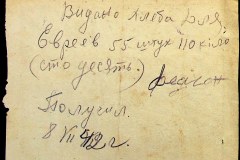 Видано хліба для
Евреїв 55 штук 110 кіло
(сто десять.)
Получил.
8 VII 42 г.